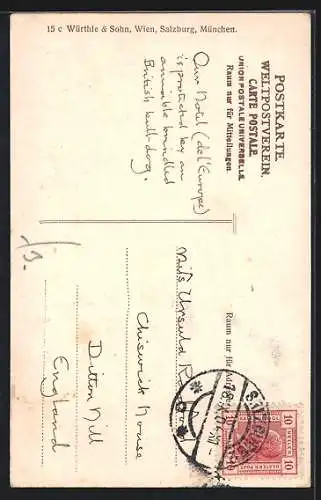 15 c Würthle & Sohn, Wien, Salzburg, München.
POSTKARTE.
WELTPOSTVEREIN.
CARTE POSTALE.
UNION POSTALE UNIVERSELLE.
Raum nur für Mitteilungen.
Our Hotel (de l'Europe)
is protected by an
amiable brindled
British bull dog.
Raum nur für
Miss Ursula
Chiswick House
Ditton Hill
England
10 10
HELLER
10 10